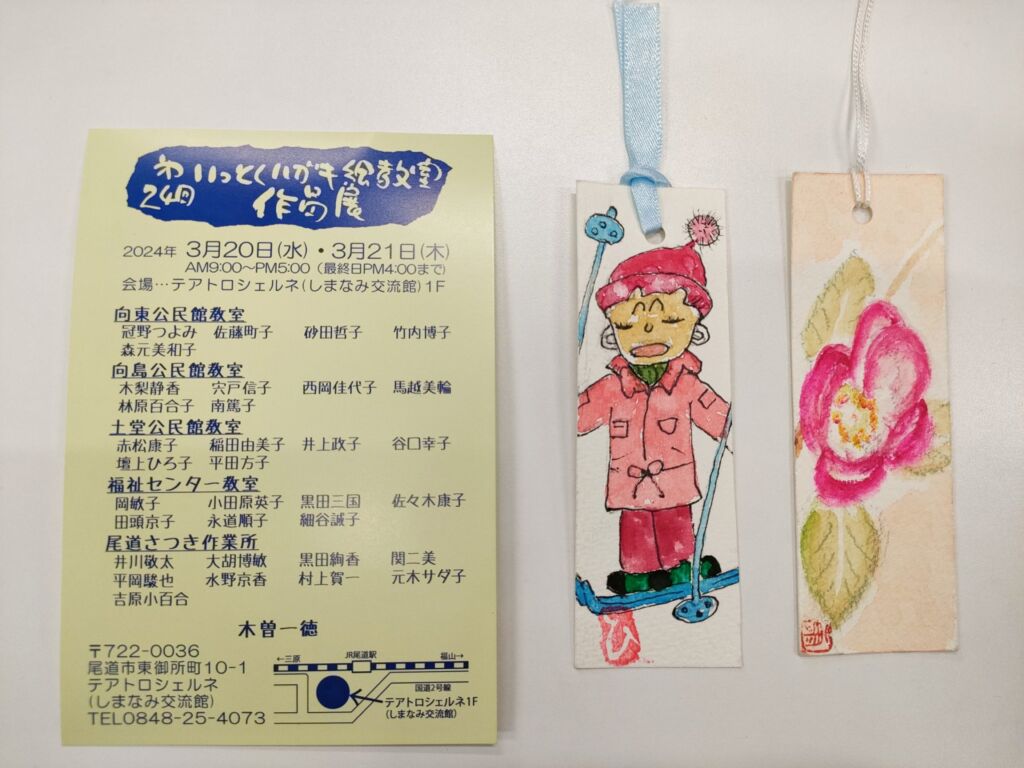 いっとくハガキ絵教室
作品展
2024年 3月20日(水)・3月21日(木)
AM9:00〜PM5:00 (最終日PM4:00まで)
会場…テアトロシェルネ(しまなみ交流館)1F
向東公民館教室
冠野つよみ 佐藤町子 砂田哲子 竹内博子
森元美和子
向島公民館教室
木梨静香 宍戸信子 西岡佳代子 馬越美輪
林原百合子 南篤子
土堂公民館教室
赤松康子 稲田由美子 井上政子 谷口幸子
壇上ひろ子 平田方子
福祉センター教室
岡敏子 小田原英子 黒田三国 佐々木康子
田頭京子 永道順子 細谷誠子
尾道さつき作業所
井川敬太 大胡博敏 黒田絢香 関二美
平岡駿也 水野京香 村上賀一 元木サダ子
吉原小百合
木曽一徳
〒722-0036
尾道市東御所町10-1
テアトロシェルネ
(しまなみ交流館)
TEL0848-25-4073
←三原 JR尾道駅 福山→
国道2号線
テアトロシェルネ1F
(しまなみ交流館)
ひ